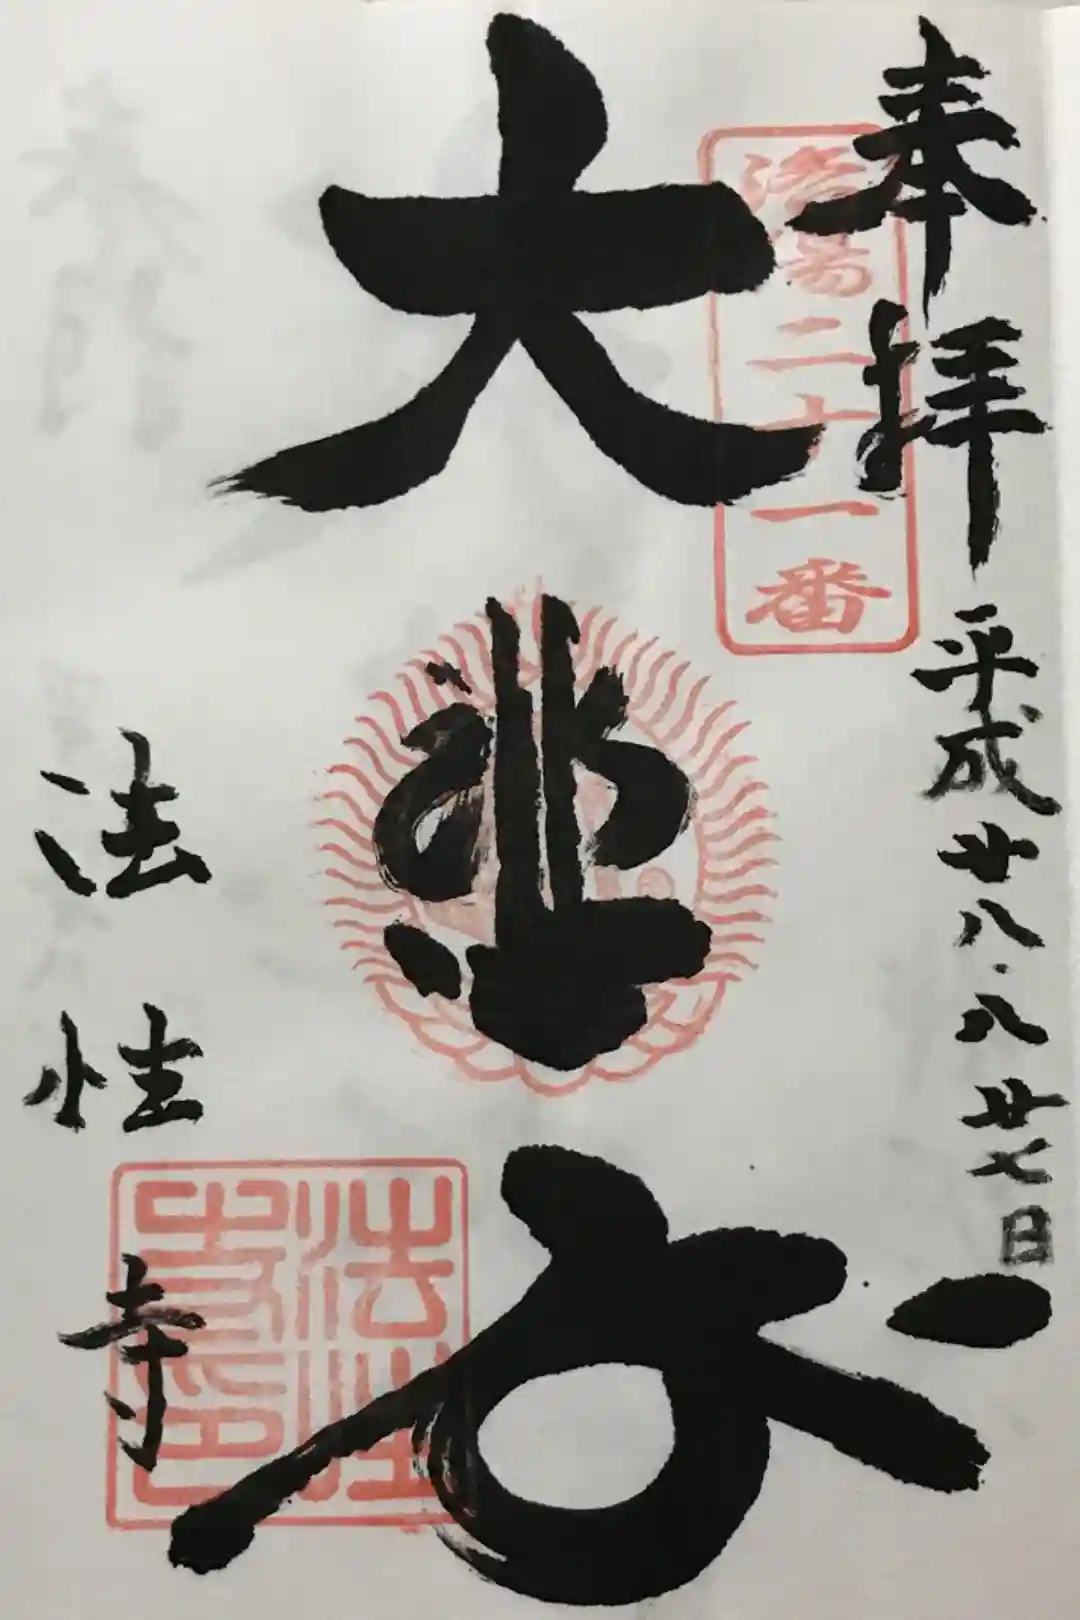 奉拝
平成廿八・八廿七日
洛陽二十一番
大悲
法性寺
法性寺印